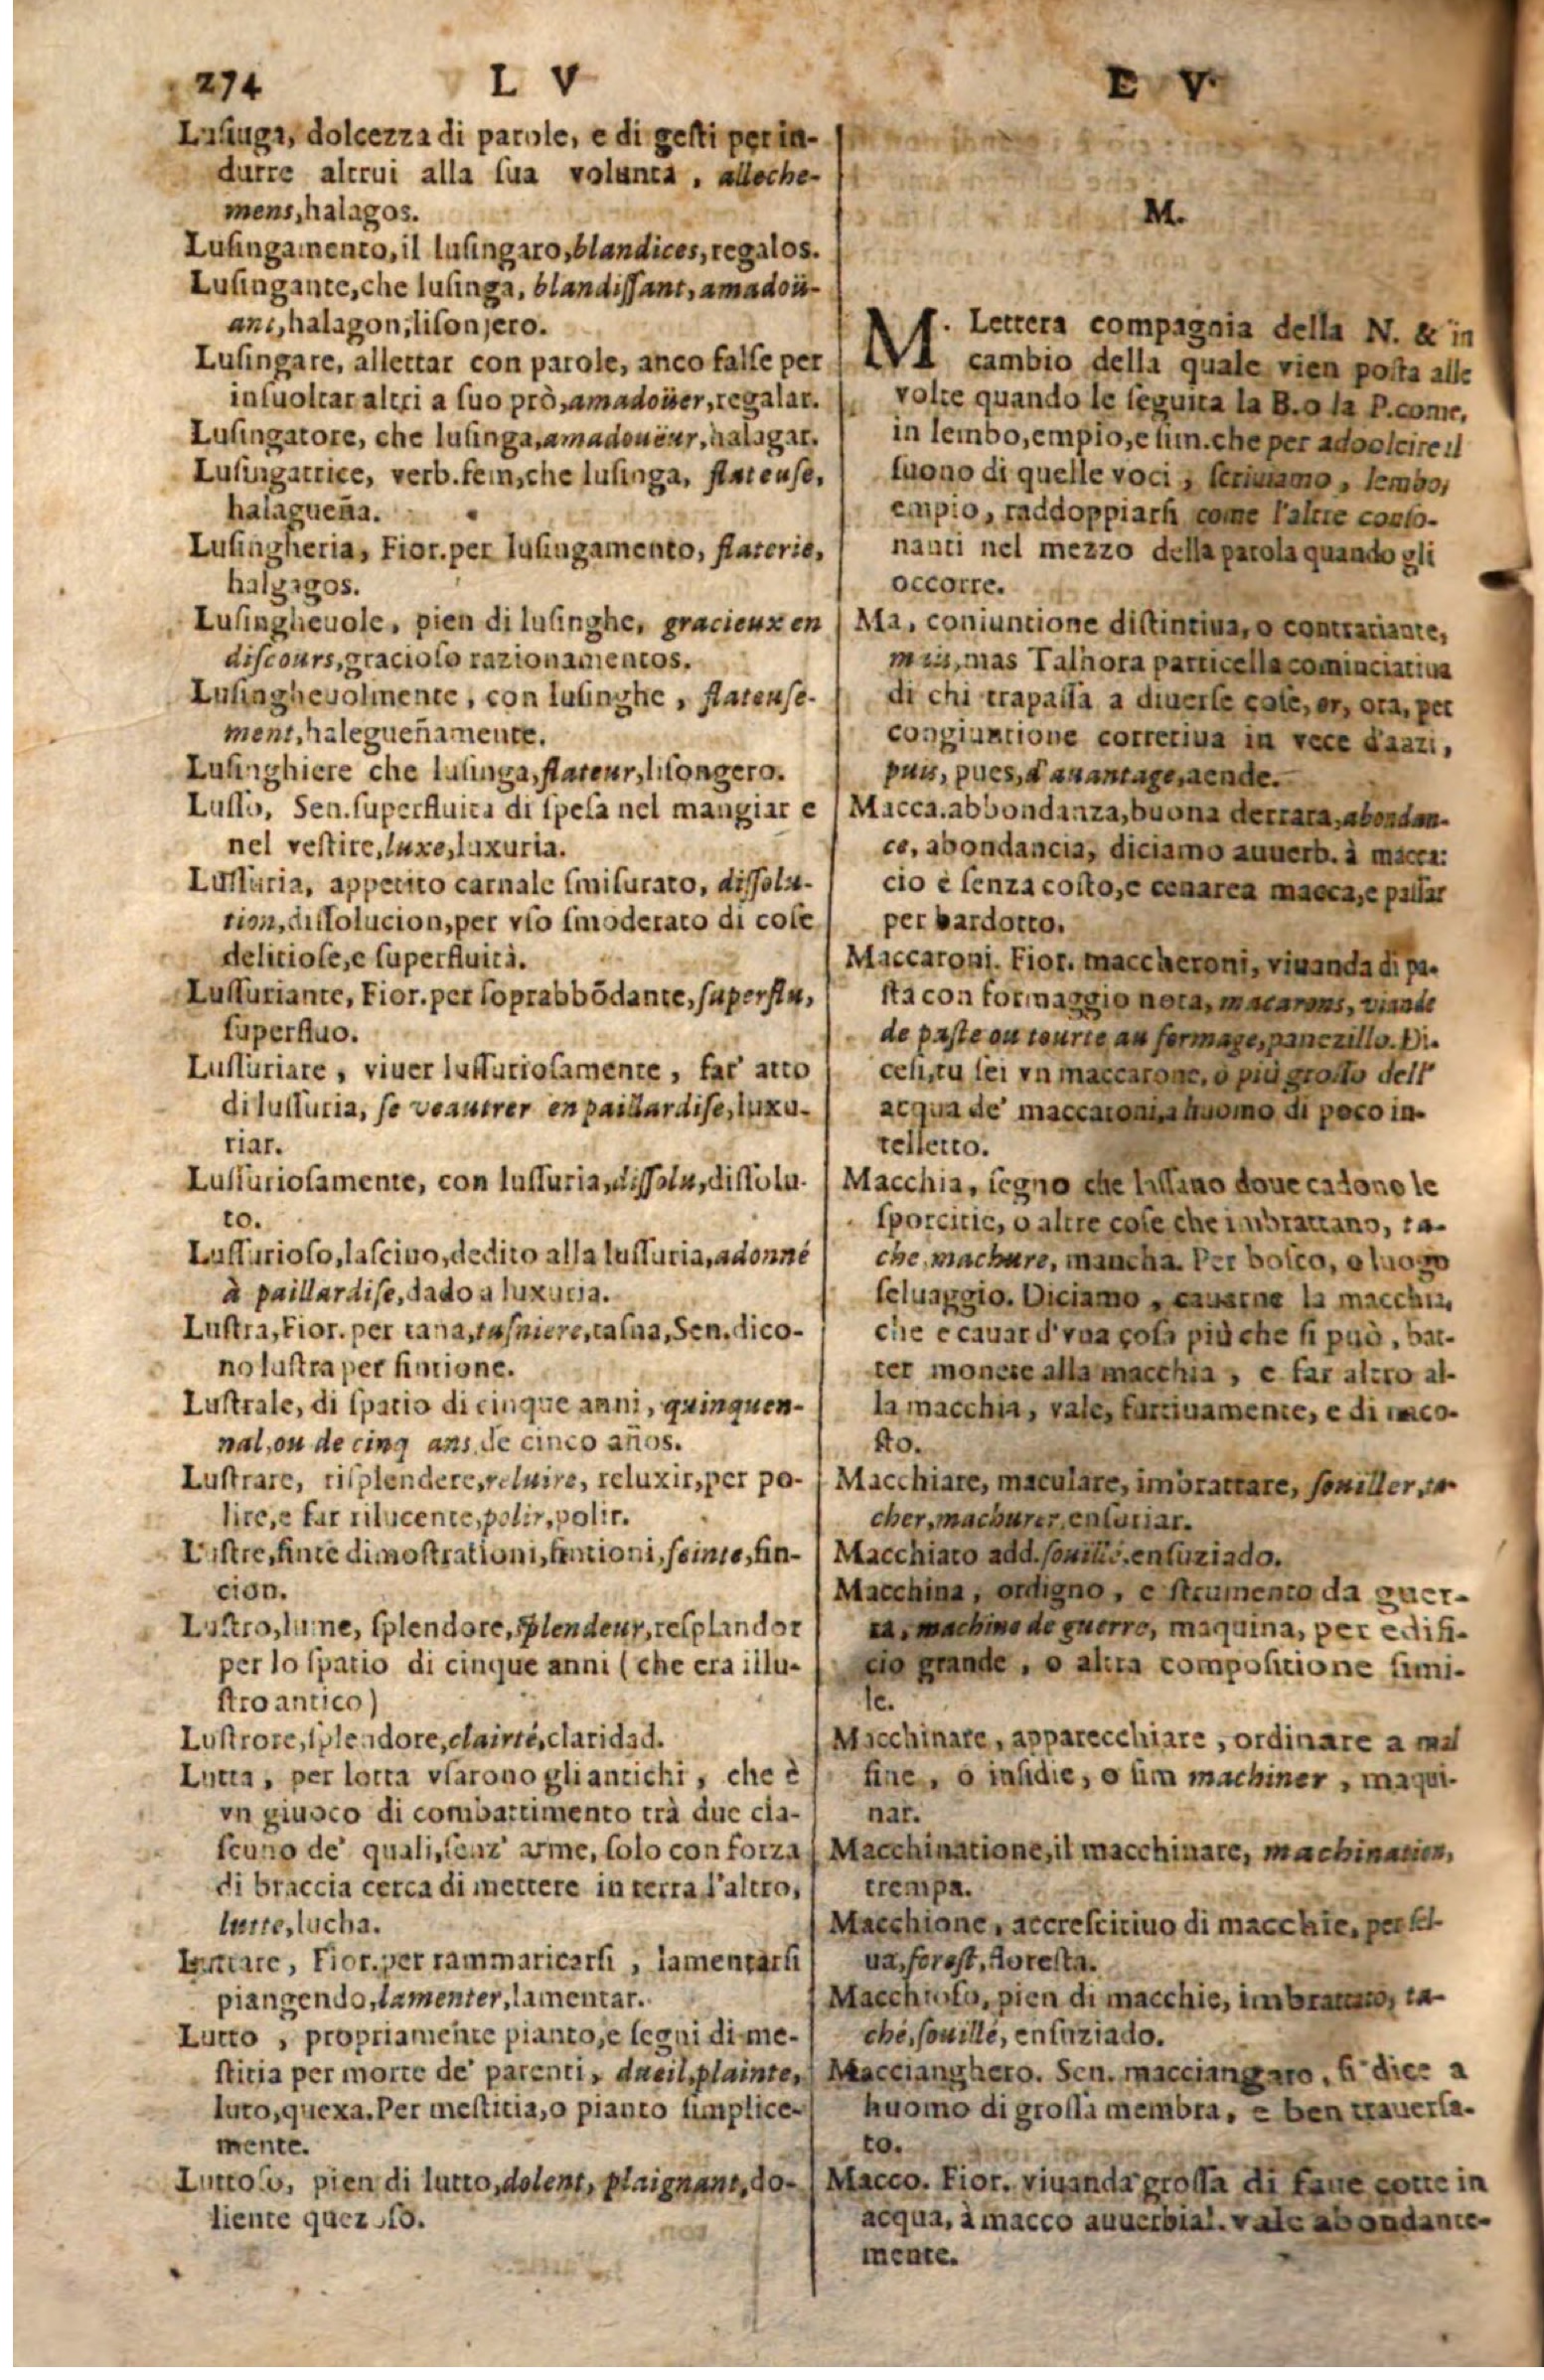 274 L V
Lusinga, dolcezza di parole, e di gesti per in-
durre altrui alla sua voluntà, alleche-
mens, halagos.
Lusingamento, il lusingaro, blandices, regalos.
Lusingante, che lusinga, blandissant, amadoü-
ant, halagon, lisonjero.
Lusingare, allettar con parole, anco false per
insuoltar altri a suo prò, amadoüer, regalar.
Lusingatore, che lusinga, amadoueur, halagar.
Lusingatrice, verb. fem, che lusinga, flateuse,
halagueña.
Lusingheria, Fior. per lusingamento, flaterie,
halgagos.
Lusingheuole, pien di lusinghe, gracieux en
discours, gracioso razionamentos.
Lusingheuolmente, con lusinghe, flateuse-
ment, halegueñamente.
Lusinghiere che lusinga, flateur, lisongero.
Lusso, Sen. superfluità di spesa nel mangiar e
nel vestire, luxe, luxuria.
Lussuria, appetito carnale smisurato, dissolu-
tion, dissolucion, per vso smoderato di cose
delitiose, e superfluità.
Lussuriante, Fior. per soprabbõdante, superflu,
superfluo.
Lussuriare, viuer lussuriosamente, far' atto
di lussuria, se veautrer en paillardise, luxu-
riar.
Lussuriosamente, con lussuria, dissolu, dissolu-
to.
Lussurioso, lasciuo, dedito alla lussuria, adonné
à paillardise, dado a luxuria.
Lustra, Fior. per tana, tasniere, tasna, Sen. dico-
no lustra per fintione.
Lustrale, di spatio di cinque anni, quinquen-
nal, ou de cinq ans, de cinco años.
Lustrare, risplendere, reluire, reluxir, per po-
lire, e far rilucente, polir, polir.
Lustre, finte dimostrationi, fintioni, feinte, fin-
cion.
Lustro, lume, splendore, splendeur, resplandor
per lo spatio di cinque anni (che era illu-
stro antico)
Lustrore, splendore, clairté, claridad.
Lutta, per lotta vsarono gli antichi, che è
vn giuoco di combattimento trà due cia-
scuno de' quali, senz' arme, solo con forza
di braccia cerca di mettere in terra l'altro,
lutte, lucha.
Luttare, Fior. per rammaricarsi, lamentarsi
piangendo, lamenter, lamentar.
Lutto, propriamente pianto, e segni di me-
stitia per morte de' parenti, dueil, plainte,
luto, quexa. Per mestitia, o pianto simplice-
mente.
Luttoso, pien di lutto, dolent, plaignant, do-
liente
E V.
M.
M. Lettera compagnia della N. & in
cambio della quale vien posta alle
volte quando le seguita la B. o la P. come,
in lembo, empio, e sim. che per adolcire il
suono di quelle voci, scriuiamo, lembo,
empio, raddoppiarsi come l'altre conso-
nanti nel mezzo della parola quando gli
occorre.
Ma, coniuntione distintiua, o contrariante,
mais, mas Talhora particella cominciatiua
di chi trapassa a diuerse cose, or, ora, per
congiuntione corretiua in vece d'anzi,
puis, pues, d'auantage, aende.
Macca. abbondanza, buona derrata, abondan-
ce, abondancia, diciamo auuerb. à macca:
cio è senza costo, e cenare a macca, e passar
per bardotto.
Maccaroni. Fior. maccheroni, viuanda di pa-
sta con formaggio nota, macarons, viande
de paste ou tourte au formage, panezillo. Di-
cesi, tu sei vn maccarone, ò più grosso dell'
acqua de' maccaroni, a huomo di poco in-
telletto.
Macchia, segno che lassano doue cadono le
sporcitie, o altre cose che imbrattano, ta-
che, machure, mancha. Per bosco, o luogo
seluaggio. Diciamo, cauarne la macchia,
che è cauar d'vna cosa più che si può, bat-
ter monete alla macchia, e far altro al-
la macchia, vale, furtiuamente, e di nasco-
sto.
Macchiare, maculare, imbrattare, souiller, ta-
cher, machurer, ensuziar.
Macchiato add. souillé, ensuziado.
Macchina, ordigno, e strumento da guer-
ra, machine de guerre, maquina, per edifi-
cio grande, o altra compositione simi-
le.
Macchinare, apparecchiare, ordinare a mal
fine, o insidie, o sim machiner, maqui-
nar.
Macchinatione, il macchinare, machination,
trempa.
Macchione, accrescitiuo di macchie, per sel-
ua, forest, floresta.
Macchioso, pien di macchie, imbrattato, ta-
ché, souillé, ensuziado.
Maccianghero. Sen. macciangaro, si dice a
huomo di grossa membra, e ben trauersa-
to.
Macco. Fior. viuanda grossa di faue cotte in
acqua, à macco auuerbial. vale abondante-
mente.